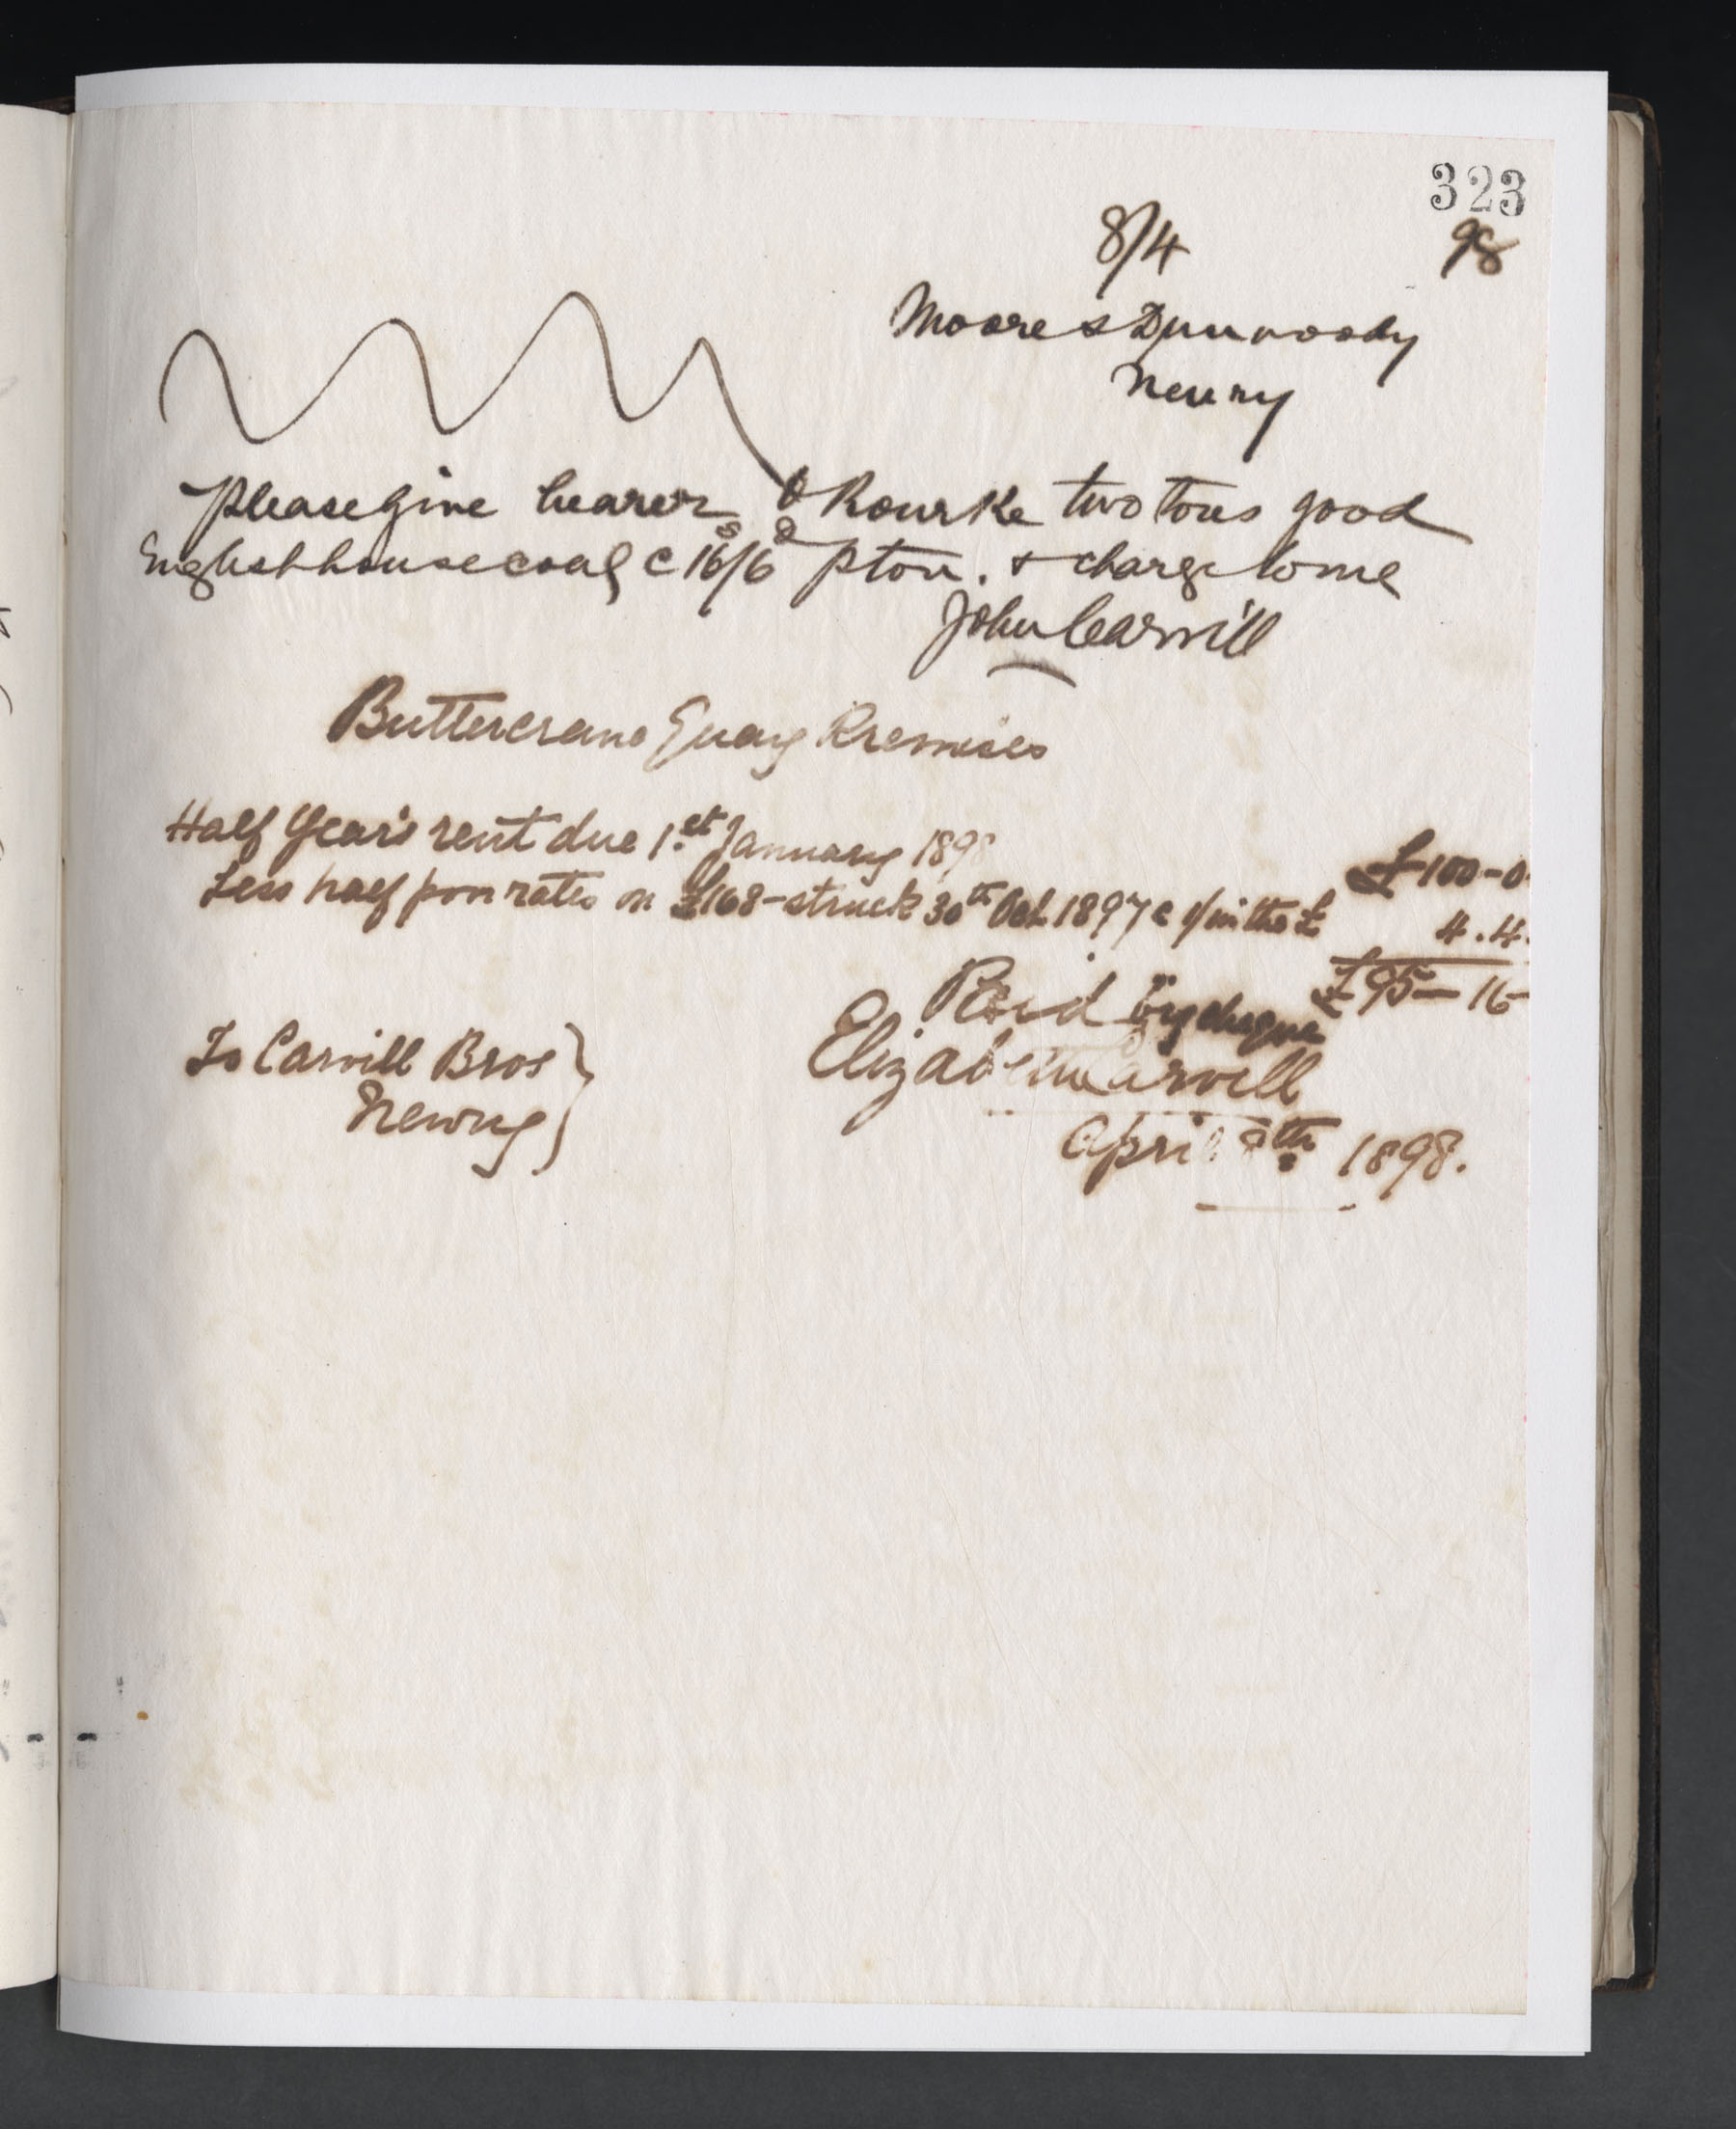 323
8/4 98
Moore & Dunwoody
Newry
Please give bearer O Rourke two tons good
English house coal @ 16s/6d p ton. & charge to me
John Carvill
Buttercrane Quay Premises
Half Year's rent due 1st January 1898 £100-0
Less half poor rates on £168-struck 30th Oct 1897 @ 1/ in the £ 4.4.
£95-16-
Paid by cheque
To Carvill Bros Elizabeth Carvill
Newry
April 8th 1898.